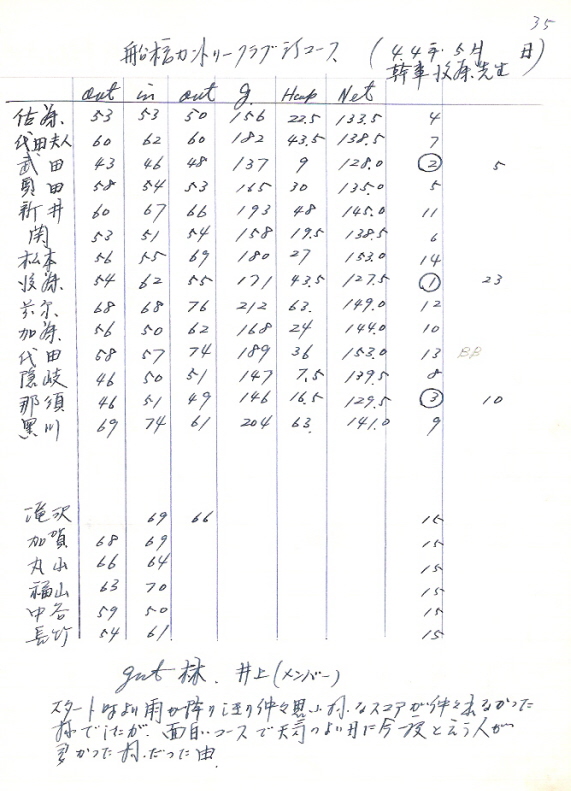 35
船橋カントリークラブ
(44年 5月 日)
幹事 後藤先生
out in out g. Hcap Net
佐藤 53 53 50 156 22.5 133.5 4
代田夫人 60 62 60 182 43.5 138.5 7
武田 43 46 48 137 9 128.0 ② 5
奥田 58 54 53 165 30 135.0 5
新井 60 67 66 193 48 145.0 11
関 53 51 54 158 19.5 138.5 6
松本 56 55 69 180 27 153.0 14
後藤 54 62 55 171 43.5 127.5 ① 23
68 68 76 212 63. 149.0 12
加藤 56 50 62 168 24 144.0 10
代田 58 57 74 189 36 153.0 13 BB
隠岐 46 50 51 147 7.5 139.5 8
那須 46 51 49 146 16.5 129.5 ③ 10
黒川 69 74 61 204 63. 141.0 9
滝沢 69 66 15
加賀 68 69 15
丸山 66 64 15
福山 63 70 15
中谷 59 50 15
長竹 54 61 15
井上(メンバー)
スタート時より雨が降り 仲々思ふ様なスコアが仲々出なかった
様でしたが 面白いコースで天気のよい日に今一度と云う人が
多かった様だった由